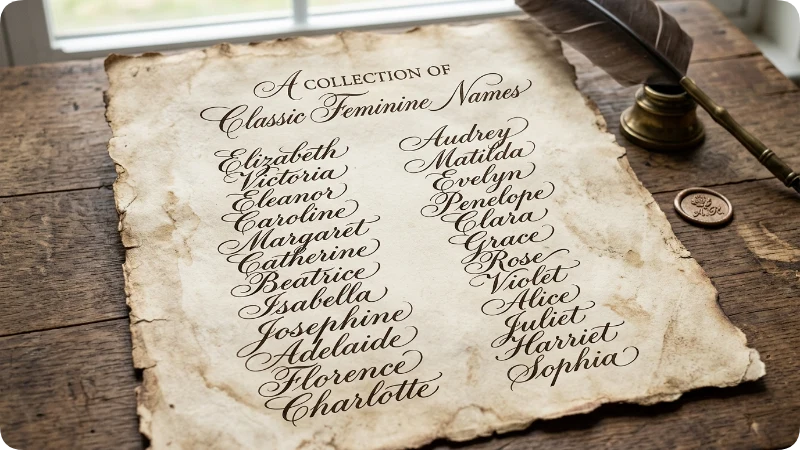 A COLLECTION OF
Classic Feminine Names
Elizabeth
Victoria
Eleanor
Caroline
Margaret
Catherine
Beatrice
Isabella
Josephine
Adelaide
Florence
Charlotte
Audrey
Matilda
Evelyn
Penelope
Clara
Grace
Rose
Violet
Alice
Juliet
Harriet
Sophia